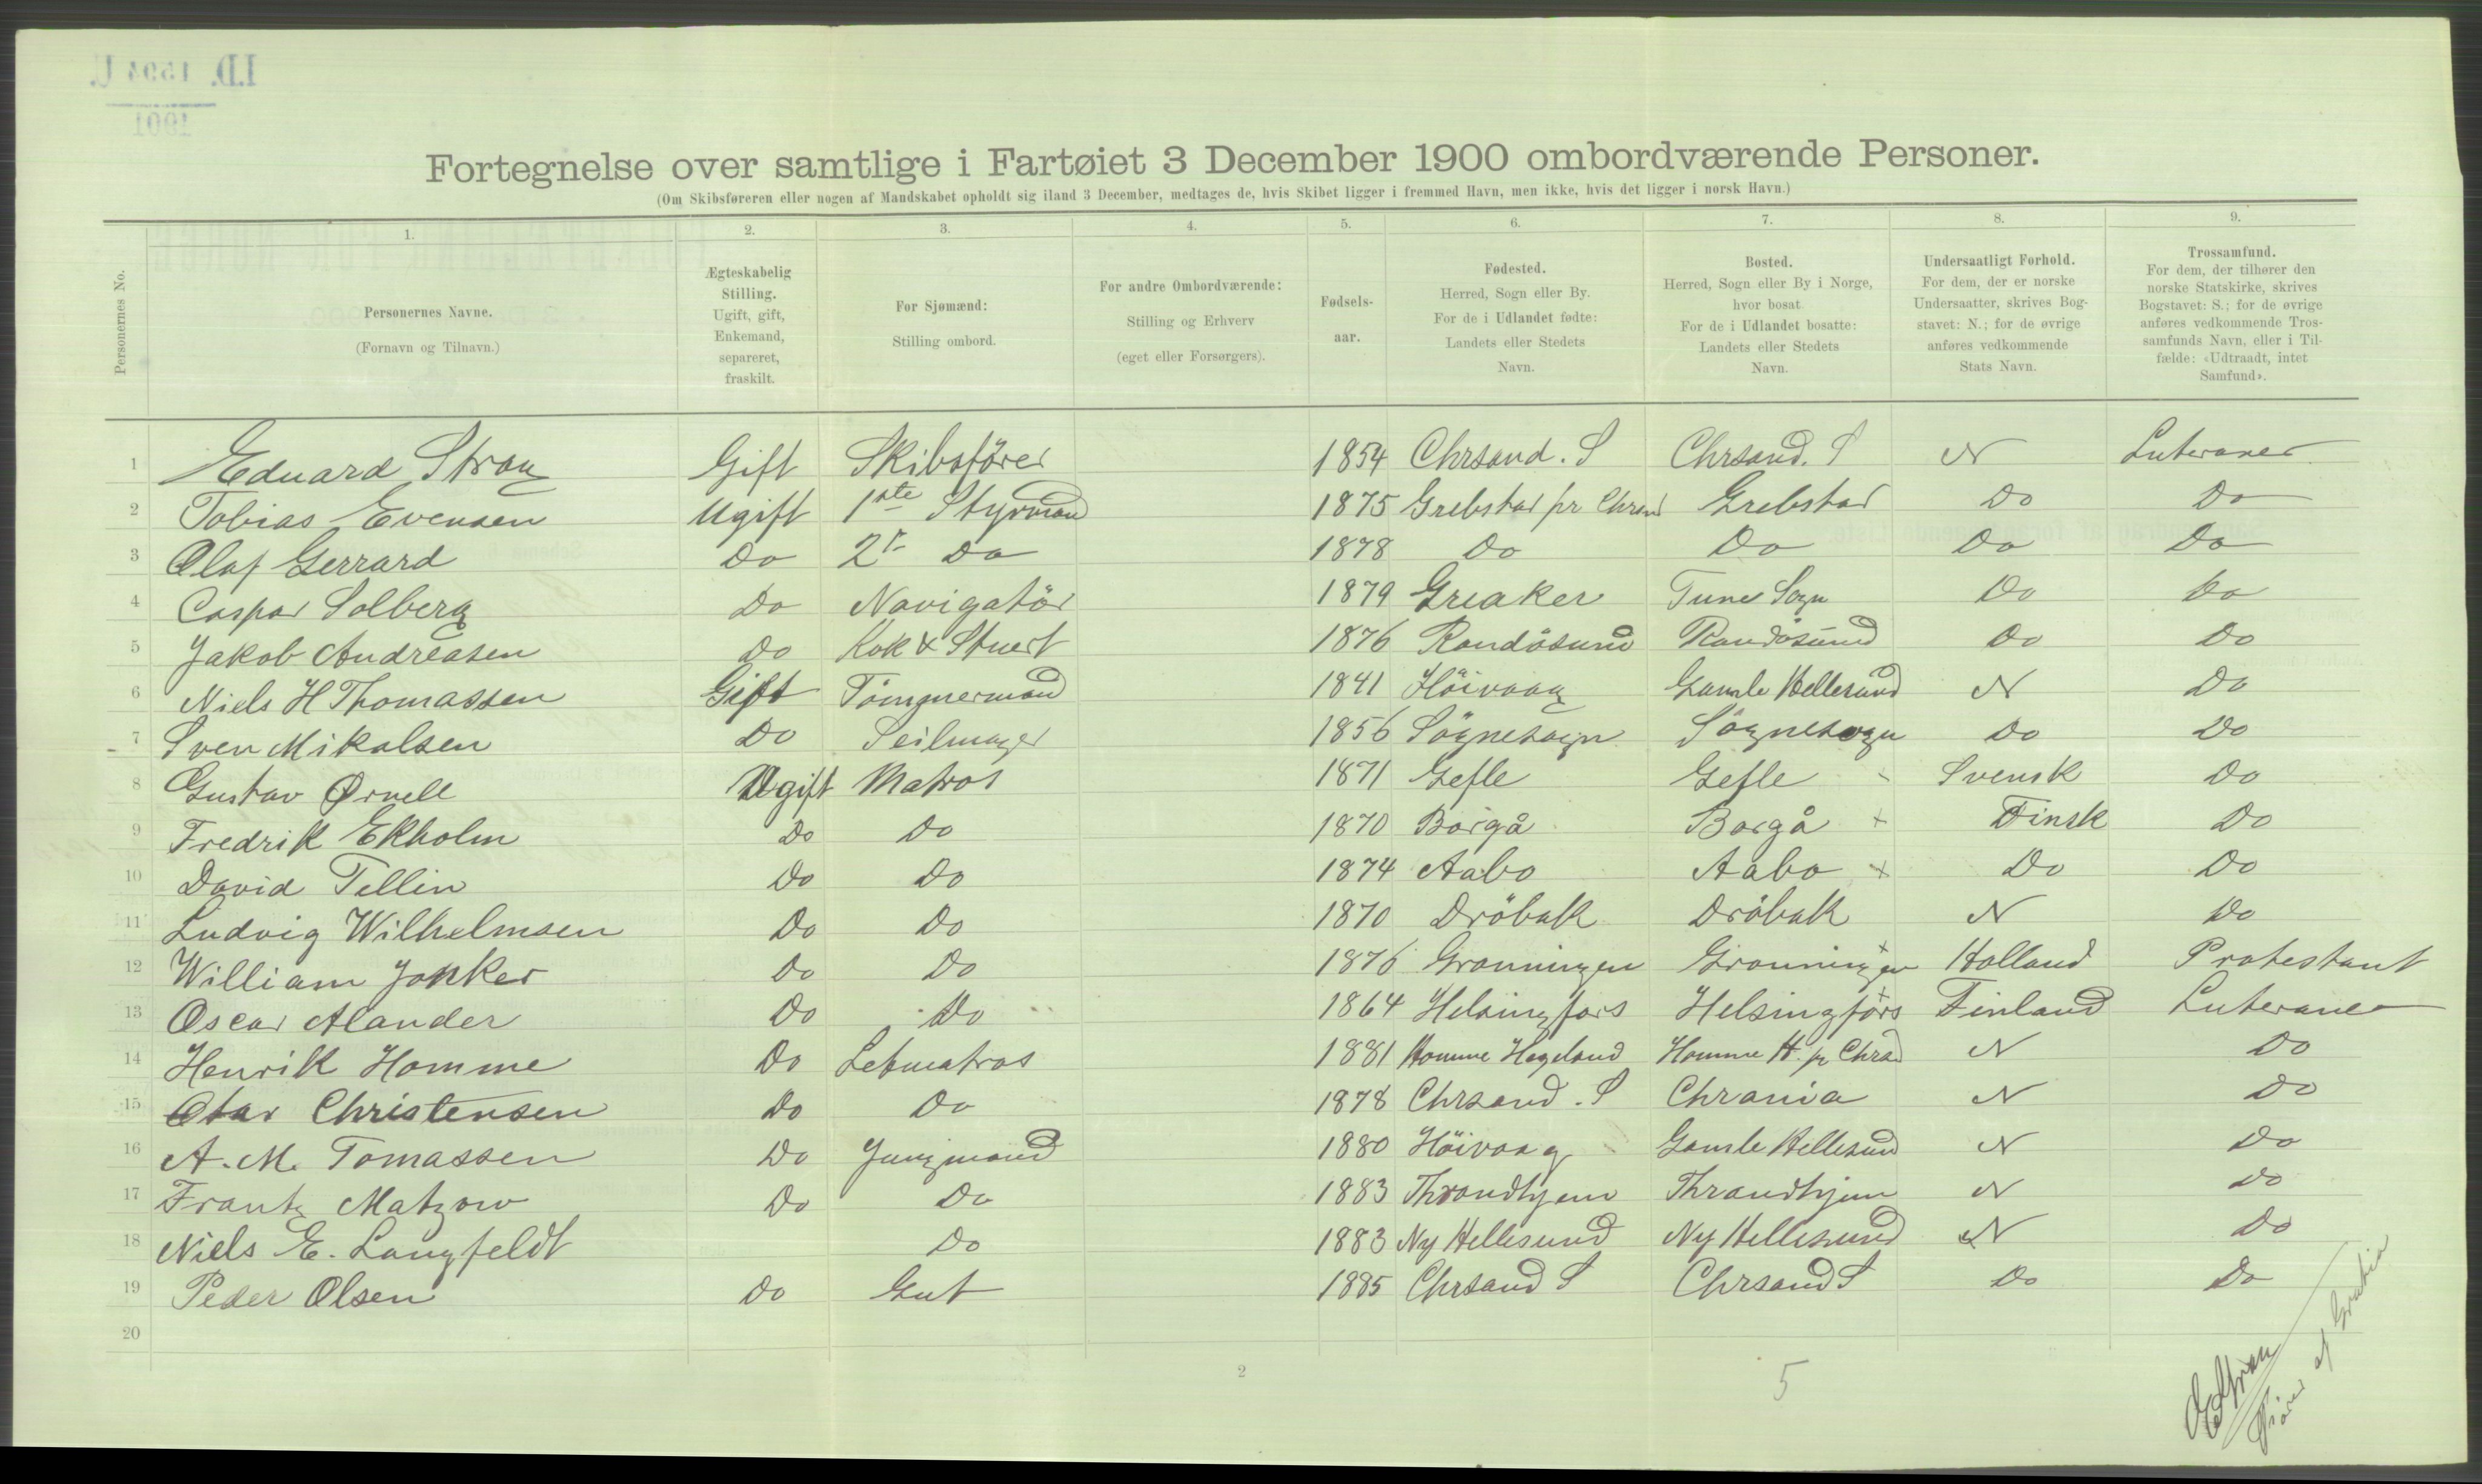 I.D. 1594 U.
1901
Fortegnelse over samtlige i Fartøiet 3 December 1900 ombordværende Personer.
(Om Skibsføreren eller nogen af Mandskabet opholdt sig iland 3 December, medtages de, hvis Skibet ligger i fremmed Havn, men ikke, hvis det ligger i norsk Havn.)
Personernes No.
1. Personernes Navne. (Fornavn og Tilnavn.)
2. Ægteskabelig Stilling. Ugift, gift, Enkemand, separeret, fraskilt.
3. For Sjømænd: Stilling ombord.
4. For andre Ombordværende: Stilling og Erhverv (eget eller Forsørgers).
5. Fødsels-aar.
6. Fødested. Herred, Sogn eller By. For de i Udlandet fødte: Landets eller Stedets Navn.
7. Bosted. Herred, Sogn eller By i Norge, hvor bosat. For de i Udlandet bosatte: Landets eller Stedets Navn.
8. Undersaatligt Forhold. For dem, der er norske Undersaatter, skrives Bogstavet: N.; for de øvrige anføres vedkommende Stats Navn.
9. Trossamfund. For dem, der tilhører den norske Statskirke, skrives Bogstavet: S.; for de øvrige anføres vedkommende Trossamfunds Navn, eller i Tilfælde: «Udtraadt, intet Samfund».
1 Eduard Stray Gift Skibsförer 1854 Chrsand. S Chrsand. S N Luteraner
2 Tobias Evensen Ugift 1ste Styrmand 1875 Grebstad pr Chrsand Grebstad Do Do
3 Olaf Gerrard Do 2r Do 1878 Do Do Do Do
4 Caspar Solberg Do Navigatör 1879 Greaker Tune Sogn Do Do
5 Jakob Andreasen Do Kok & Stuert 1876 Randösund Randösund Do Do
6 Niels H Thomassen Gift Tömmermand 1841 Höivaag Gamle Hellesund N Do
7 Sven Mikalsen Do Seilmager 1856 Sögnesogn Sögnesogn Do Do
8 Gustav Ørnell Ugift Matros 1871 Gefle Gefle Svensk Do
9 Fredrik Ekholm Do Do 1870 Borgå Borgå + Finsk Do
10 David Tellin Do Do 1874 Aabo Aabo + Do Do
11 Ludvig Wilhelmsen Do Do 1870 Dröbak Dröbak N Do
12 William Jonker Do Do 1876 Gronningen Gronningen + Holland Protestant
13 Oscar Alander Do Do 1864 Helsingfors Helsingfors + Finland Luteraner
14 Henrik Homme Do Letmatros 1881 Homme Hægeland Homme H. pr Chrsd N Do
15 Otar Christensen Do Do 1878 Chrsand. S Chrania N Do
16 A. M. Tomassen Do Jungmand 1880 Höivaag Gamle Hellesund N Do
17 Frantz Matzow Do Do 1883 Throndhjem Throndhjem N Do
18 Niels E. Langfeldt Do 1883 Ny Hellesund Ny Hellesund N Do
19 Peder Olsen Do Gut 1885 Chrsand S Chrsand S Do Do
20
2
5
E Stray
Förer af